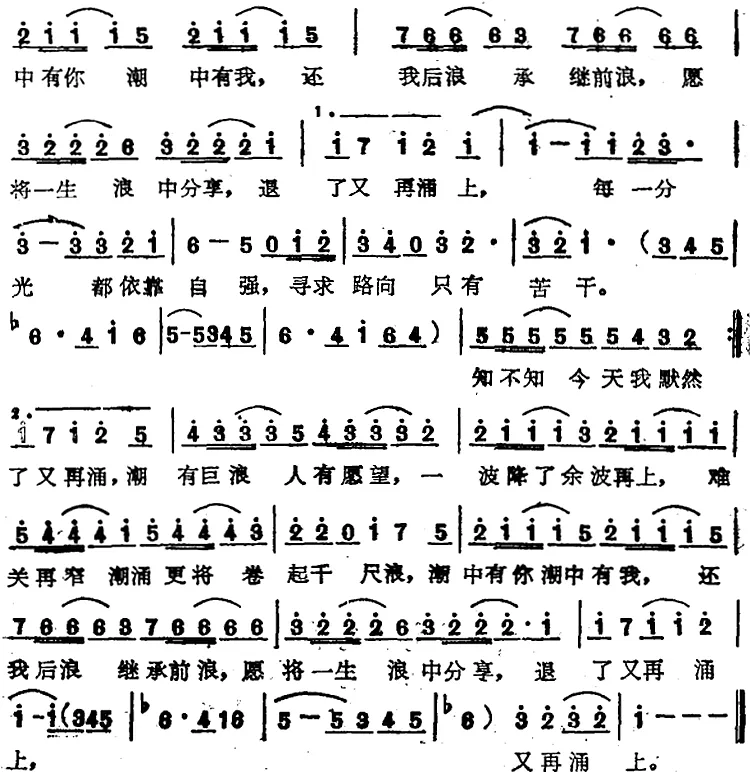 2̇ 1̇ 1̇ 1̇ 5 2̇ 1̇ 1̇ 1̇ 5 | 7 6 6 6 3 7 6 6 6 6 |
中有你 潮 中有我, 还 我后浪 承 继前浪, 愿
3̇ 2̇ 2̇ 2̇ 6 3̇ 2̇ 2̇ 2̇ 1̇ | 1. 1̇ 7 1̇ 2̇ 1̇ | 1̇ - 1̇ 1̇ 2̇ 3̇ ·
将一生 浪 中分享, 退 了又 再涌 上, 每 一分
3̇ - 3̇ 3̇ 2̇ 1̇ | 6 - 5 0 1̇ 2̇ | 3̇ 4̇ 0 3̇ 2̇ · | 3̇ 2̇ 1̇ · ( 3 4 5
光 都依靠 自 强, 寻求 路向 只有 苦 干。
♭6 · 4 1̇ 6 | 5 - 5 3 4 5 | 6 · 4 1̇ 6 4 ) | 5 5 5 5 5 5 4 3 2 :||
知不知 今 天我默然
2. 1̇ 7 1̇ 2̇ 5 | 4̇ 3̇ 3̇ 3̇ 5 4̇ 3̇ 3̇ 3̇ 2̇ | 2̇ 1̇ 1̇ 1̇ 3̇ 2̇ 1̇ 1̇ 1̇ 1̇ |
了又再涌, 潮 有巨浪 人有愿望, 一 波降了余波再上, 难
5̇ 4̇ 4̇ 4̇ 1̇ 5̇ 4̇ 4̇ 4̇ 3̇ | 2̇ 2̇ 0 1̇ 7 5 | 2̇ 1̇ 1̇ 1̇ 5 2̇ 1̇ 1̇ 1̇ 5
关再窄 潮涌更将 卷 起千 尺浪, 潮中有你潮中有我, 还
7 6 6 6 3 7 6 6 6 6 | 3̇ 2̇ 2̇ 2̇ 6 3̇ 2̇ 2̇ 2̇ · 1̇ | 1̇ 7 1̇ 1̇ 2̇
我后浪 继承前浪, 愿 将一生 浪中分享, 退 了又再 涌
1̇ - 1̇ ( 3 4 5 | ♭6 · 4 1̇ 6 | 5 - 5 3 4 5 | ♭6 ) 3̇ 2̇ 3̇ 2̇ | 1̇ - - - ||
上, 又再涌 上。